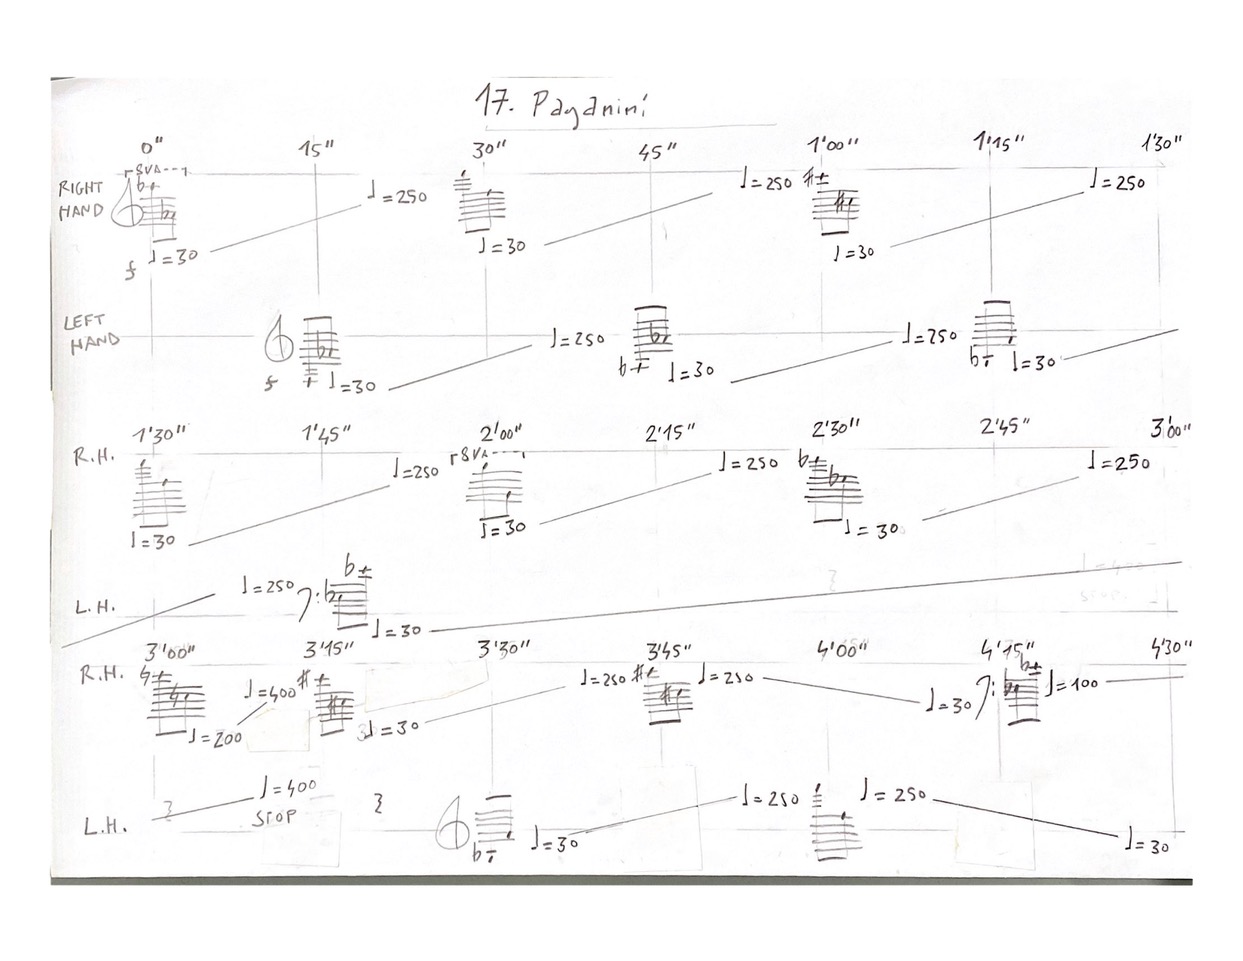 17. Paganini
0" 15" 30" 45" 1'00" 1'15" 1'30"
RIGHT HAND
8VA
♩=250 ♩=250 ♩=250
♩=30 ♩=30 ♩=30
f
LEFT HAND
♩=250 ♩=250
f ♩=30 ♩=30 ♩=30
1'30" 1'45" 2'00" 2'15" 2'30" 2'45" 3'00"
R.H.
8VA
♩=250 ♩=250 ♩=250
♩=30 ♩=30 ♩=30
L.H. ♩=250
♩=30
3'00" 3'15" 3'30" 3'45" 4'00" 4'15" 4'30"
R.H. ♩=400 ♩=250 ♩=250 ♩=30 ♩=100
♩=200 ♩=30
L.H. ♩=400 ♩=250 ♩=250
STOP
♩=30 ♩=30